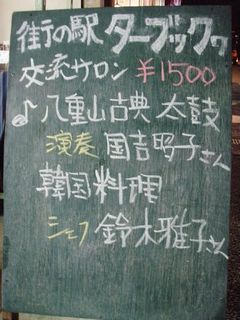 街の駅 ターブックヮ
交流サロン ¥1500
♪八重山古典 太鼓
演奏 国吉昭子さん
韓国料理
シェフ 鈴木雅子さん